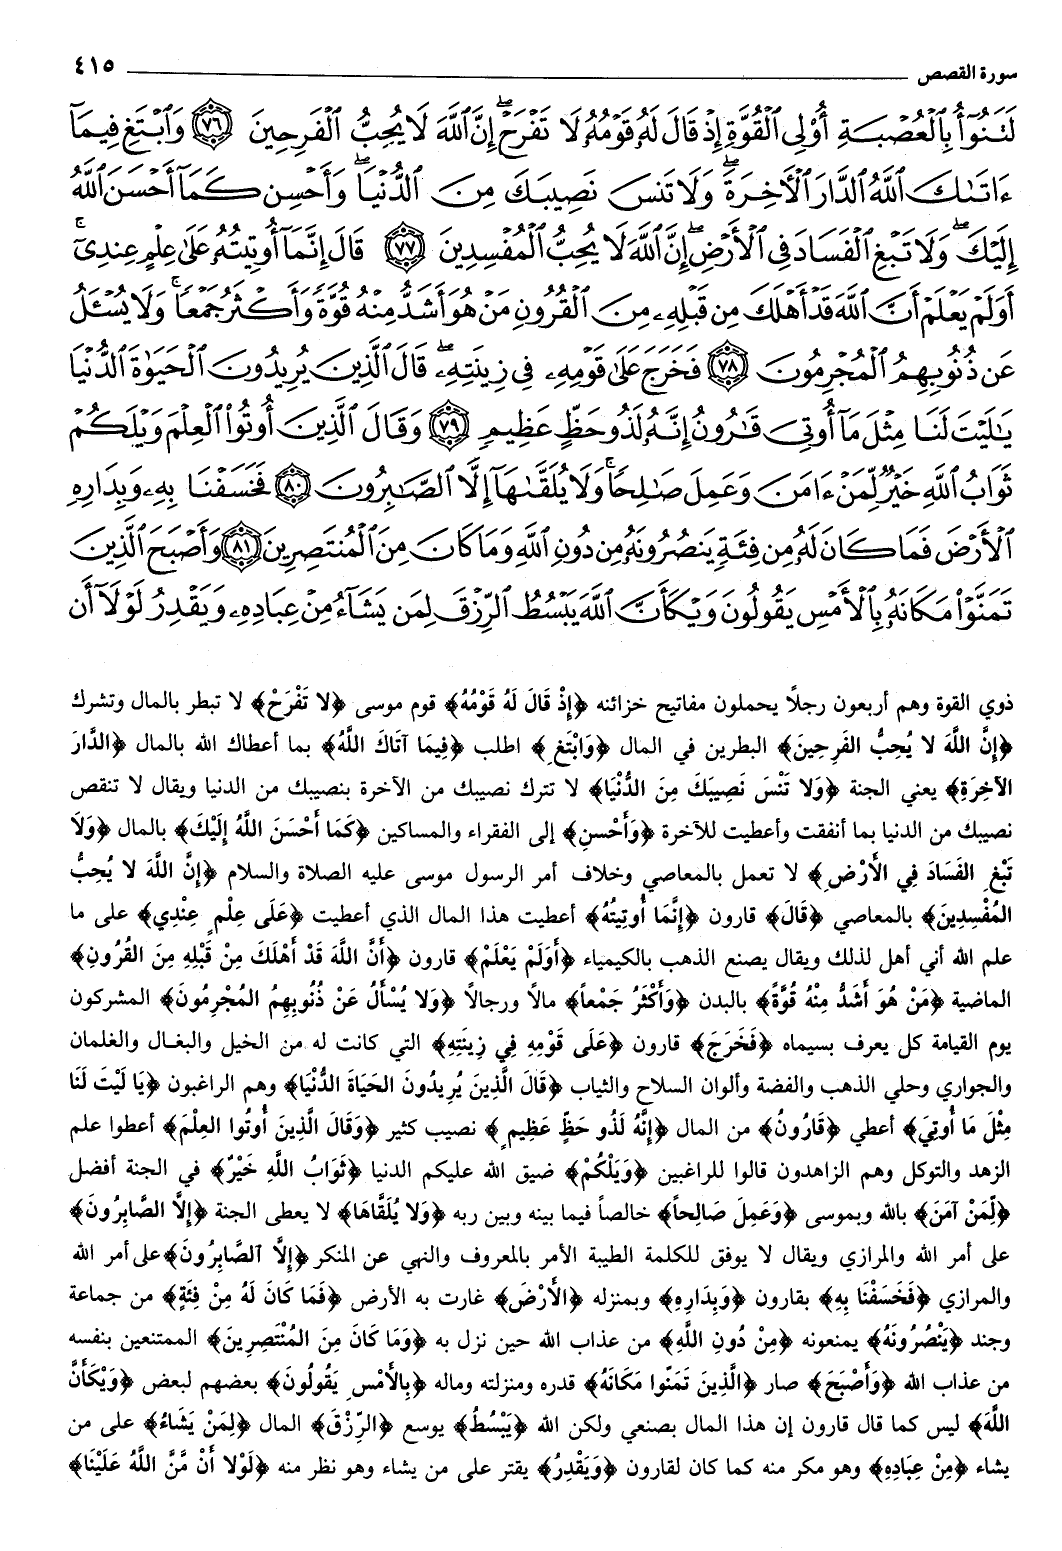 سورة القصص ٤١٥
لَتَنُوٓأُ بِٱلْعُصْبَةِ أُو۟لِى ٱلْقُوَّةِ إِذْ قَالَ لَهُۥ قَوْمُهُۥ لَا تَفْرَحْ ۖ إِنَّ ٱللَّهَ لَا يُحِبُّ ٱلْفَرِحِينَ ٧٦ وَٱبْتَغِ فِيمَآ
ءَاتَىٰكَ ٱللَّهُ ٱلدَّارَ ٱلْـَٔاخِرَةَ ۖ وَلَا تَنسَ نَصِيبَكَ مِنَ ٱلدُّنْيَا ۖ وَأَحْسِن كَمَآ أَحْسَنَ ٱللَّهُ
إِلَيْكَ ۖ وَلَا تَبْغِ ٱلْفَسَادَ فِى ٱلْأَرْضِ ۖ إِنَّ ٱللَّهَ لَا يُحِبُّ ٱلْمُفْسِدِينَ ٧٧ قَالَ إِنَّمَآ أُوتِيتُهُۥ عَلَىٰ عِلْمٍ عِندِىٓ ۚ
أَوَلَمْ يَعْلَمْ أَنَّ ٱللَّهَ قَدْ أَهْلَكَ مِن قَبْلِهِۦ مِنَ ٱلْقُرُونِ مَنْ هُوَ أَشَدُّ مِنْهُ قُوَّةً وَأَكْثَرُ جَمْعًا ۚ وَلَا يُسْـَٔلُ
عَن ذُنُوبِهِمُ ٱلْمُجْرِمُونَ ٧٨ فَخَرَجَ عَلَىٰ قَوْمِهِۦ فِى زِينَتِهِۦ ۖ قَالَ ٱلَّذِينَ يُرِيدُونَ ٱلْحَيَوٰةَ ٱلدُّنْيَا
يَـٰلَيْتَ لَنَا مِثْلَ مَآ أُوتِىَ قَـٰرُونُ إِنَّهُۥ لَذُو حَظٍّ عَظِيمٍ ٧٩ وَقَالَ ٱلَّذِينَ أُوتُوا۟ ٱلْعِلْمَ وَيْلَكُمْ
ثَوَابُ ٱللَّهِ خَيْرٌ لِّمَنْ ءَامَنَ وَعَمِلَ صَـٰلِحًا ۚ وَلَا يُلَقَّىٰهَآ إِلَّا ٱلصَّـٰبِرُونَ ٨٠ فَخَسَفْنَا بِهِۦ وَبِدَارِهِ
ٱلْأَرْضَ فَمَا كَانَ لَهُۥ مِن فِئَةٍ يَنصُرُونَهُۥ مِن دُونِ ٱللَّهِ وَمَا كَانَ مِنَ ٱلْمُنتَصِرِينَ ٨١ وَأَصْبَحَ ٱلَّذِينَ
تَمَنَّوْا۟ مَكَانَهُۥ بِٱلْأَمْسِ يَقُولُونَ وَيْكَأَنَّ ٱللَّهَ يَبْسُطُ ٱلرِّزْقَ لِمَن يَشَآءُ مِنْ عِبَادِهِۦ وَيَقْدِرُ لَوْلَآ أَن
ذوي القوة وهم أربعون رجلاً يحملون مفاتيح خزائنه ﴿إِذْ قَالَ لَهُ قَوْمُهُ﴾ قوم موسى ﴿لا تَفْرَحْ﴾ لا تبطر بالمال وتشرك
﴿إِنَّ اللَّهَ لا يُحِبُّ الفَرِحِينَ﴾ البطرين في المال ﴿وَابْتَغِ﴾ اطلب ﴿فِيمَا آتَاكَ اللَّهُ﴾ بما أعطاك الله بالمال ﴿الدَّارَ
الآخِرَةِ﴾ يعني الجنة ﴿وَلا تَنْسَ نَصِيبَكَ مِنَ الدُّنْيَا﴾ لا تترك نصيبك من الآخرة بنصيبك من الدنيا ويقال لا تنقص
نصيبك من الدنيا بما أنفقت وأعطيت للآخرة ﴿وَأَحْسِنِ﴾ إلى الفقراء والمساكين ﴿كَمَا أَحْسَنَ اللَّهُ إِلَيْكَ﴾ بالمال ﴿وَلَا
تَبْغِ الفَسَادَ فِي الأَرْضِ﴾ لا تعمل بالمعاصي وخلاف أمر الرسول موسى عليه الصلاة والسلام ﴿إِنَّ اللَّهَ لا يُحِبُّ
المُفْسِدِينَ﴾ بالمعاصي ﴿قَالَ﴾ قارون ﴿إِنَّمَا أُوتِيتُهُ﴾ أعطيت هذا المال الذي أعطيت ﴿عَلَى عِلْمٍ عِنْدِي﴾ على ما
علم الله أني أهل لذلك ويقال يصنع الذهب بالكيمياء ﴿أَوَلَمْ يَعْلَمْ﴾ قارون ﴿أَنَّ اللَّهَ قَدْ أَهْلَكَ مِنْ قَبْلِهِ مِنَ القُرُونِ﴾
الماضية ﴿مَنْ هُوَ أَشَدُّ مِنْهُ قُوَّةً﴾ بالبدن ﴿وَأَكْثَرُ جَمْعاً﴾ مالاً ورجالاً ﴿وَلا يُسْأَلُ عَنْ ذُنُوبِهِمُ المُجْرِمُونَ﴾ المشركون
يوم القيامة كل يعرف بسيماه ﴿فَخَرَجَ﴾ قارون ﴿عَلَى قَوْمِهِ فِي زِينَتِهِ﴾ التي كانت له من الخيل والبغال والغلمان
والجواري وحلي الذهب والفضة وألوان السلاح والثياب ﴿قَالَ الَّذِينَ يُرِيدُونَ الحَيَاةَ الدُّنْيَا﴾ وهم الراغبون ﴿يَا لَيْتَ لَنَا
مِثْلَ مَا أُوتِيَ﴾ أعطي ﴿قَارُونُ﴾ من المال ﴿إِنَّهُ لَذُو حَظٍّ عَظِيمٍ﴾ نصيب كثير ﴿وَقَالَ الَّذِينَ أُوتُوا العِلْمَ﴾ أعطوا علم
الزهد والتوكل وهم الزاهدون قالوا للراغبين ﴿وَيَلْكُمْ﴾ ضيق الله عليكم الدنيا ﴿ثَوَابُ اللَّهِ خَيْرٌ﴾ في الجنة أفضل
﴿لِّمَنْ آمَنَ﴾ بالله وبموسى ﴿وَعَمِلَ صَالِحاً﴾ خالصاً فيما بينه وبين ربه ﴿وَلا يُلَقَّاهَا﴾ لا يعطى الجنة ﴿إِلَّا الصَّابِرُونَ﴾
على أمر الله والمرازي ويقال لا يوفق للكلمة الطيبة الأمر بالمعروف والنهي عن المنكر ﴿إِلَّا الصَّابِرُونَ﴾ على أمر الله
والمرازي ﴿فَخَسَفْنَا بِهِ﴾ بقارون ﴿وَبِدَارِهِ﴾ وبمنزله ﴿الأَرْضَ﴾ غارت به الأرض ﴿فَمَا كَانَ لَهُ مِنْ فِئَةٍ﴾ من جماعة
وجند ﴿يَنْصُرُونَهُ﴾ يمنعونه ﴿مِنْ دُونِ اللَّهِ﴾ من عذاب الله حين نزل به ﴿وَمَا كَانَ مِنَ المُنْتَصِرِينَ﴾ الممتنعين بنفسه
من عذاب الله ﴿وَأَصْبَحَ﴾ صار ﴿الَّذِينَ تَمَنَّوا مَكَانَهُ﴾ قدره ومنزلته وماله ﴿بِالأَمْسِ يَقُولُونَ﴾ بعضهم لبعض ﴿وَيْكَأَنَّ
اللَّهَ﴾ ليس كما قال قارون إن هذا المال بصنعي ولكن الله ﴿يَبْسُطُ﴾ يوسع ﴿الرِّزْقَ﴾ المال ﴿لِمَنْ يَشَاءُ﴾ على من
يشاء ﴿مِنْ عِبَادِهِ﴾ وهو مكر منه كما كان لقارون ﴿وَيَقْدِرُ﴾ يقتر على من يشاء وهو نظر منه ﴿لَوْلا أَنْ مَّنَّ اللَّهُ عَلَيْنَا﴾